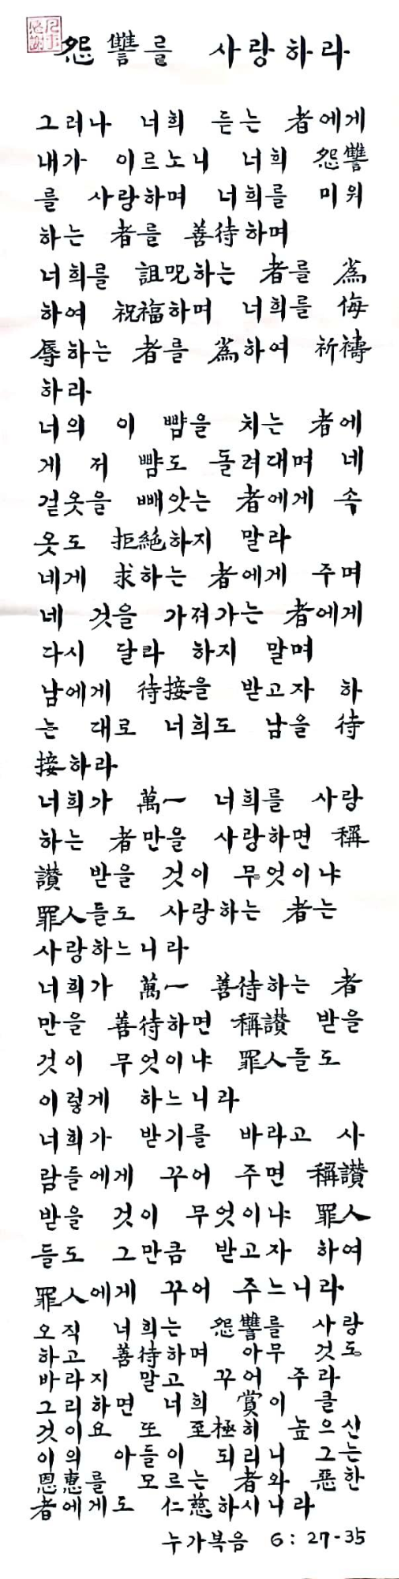 怨讐를 사랑하라
그러나 너희 듣는 者에게
내가 이르노니 너희 怨讐
를 사랑하며 너희를 미워
하는 者를 善待하며
너희를 詛呪하는 者를 爲
하여 祝福하며 너희를 侮
辱하는 者를 爲하여 祈禱
하라
너의 이 뺨을 치는 者에
게 저 뺨도 돌려대며 네
겉옷을 빼앗는 者에게 속
옷도 拒絶하지 말라
네게 求하는 者에게 주며
네 것을 가져가는 者에게
다시 달라 하지 말며
남에게 待接을 받고자 하
는 대로 너희도 남을 待
接하라
너희가 萬一 너희를 사랑
하는 者만을 사랑하면 稱
讚 받을 것이 무엇이냐
罪人들도 사랑하는 者는
사랑하느니라
너희가 萬一 善待하는 者
만을 善待하면 稱讚 받을
것이 무엇이냐 罪人들도
이렇게 하느니라
너희가 받기를 바라고 사
람들에게 꾸어 주면 稱讚
받을 것이 무엇이냐 罪人
들도 그만큼 받고자 하여
罪人에게 꾸어 주느니라
오직 너희는 怨讐를 사랑
하고 善待하며 아무 것도
바라지 말고 꾸어 주라
그리하면 너희 賞이 클
것이요 또 至極히 높으신
이의 아들이 되리니 그는
恩惠를 모르는 者와 惡한
者에게도 仁慈하시니라
누가복음 6:27-35